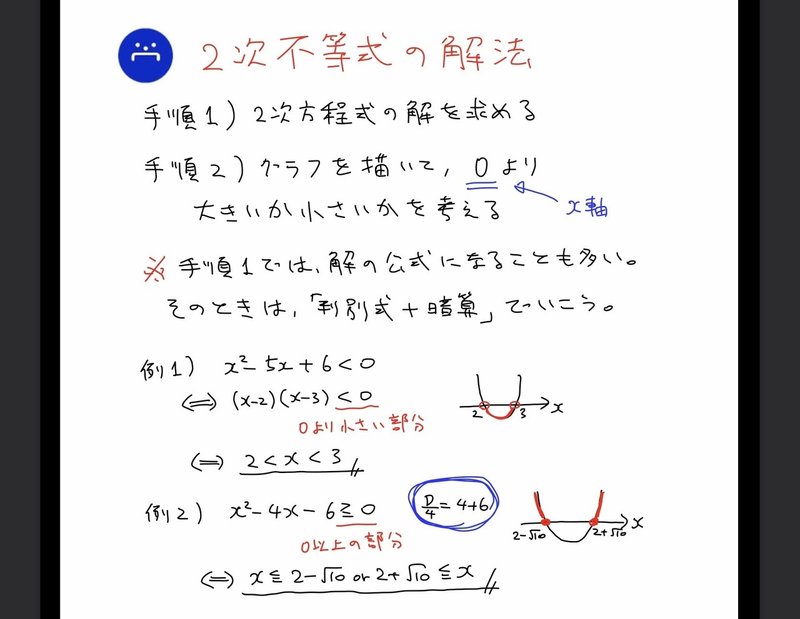 2次不等式の解法
手順1) 2次方程式の解を求める
手順2) グラフを描いて, 0より
大きいか小さいかを考える
x軸
※ 手順1では、解の公式になることも多い。
そのときは、「判別式+暗算」でいこう。
例1) x²-5x+6<0
⇔ (x-2)(x-3)<0
0より小さい部分
2 3 x
⇔ 2<x<3
例2) x²-4x-6≧0
D/4=4+6
0以上の部分
2-√10 2+√10 x
⇔ x≦2-√10 or 2+√10≦x